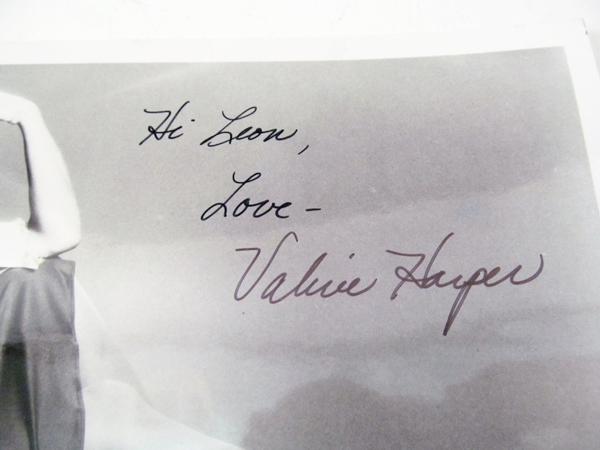 Hi Leon,
Love -
Valerie Harper